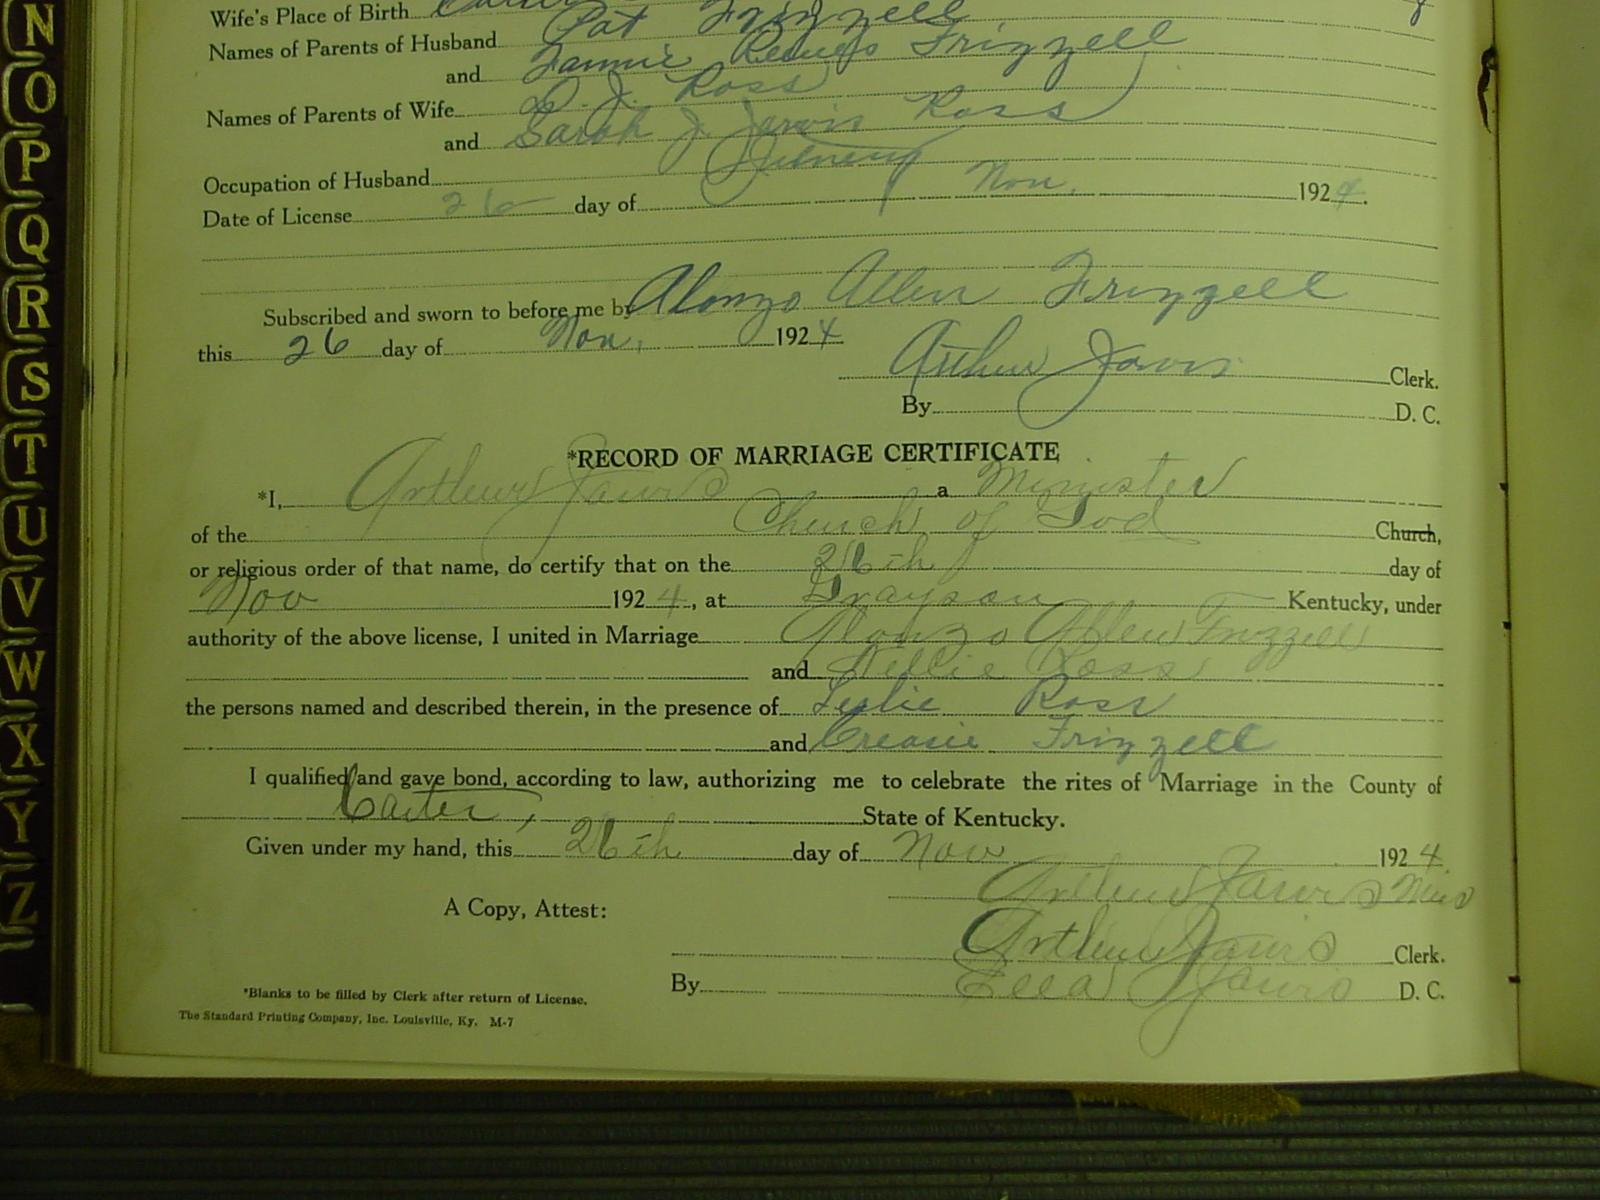 N
O
P
Q
R
S
T
U
V
W
X
Y
Z
Wife's Place of Birth Carter
Names of Parents of Husband Pat Frizzell
and Fannie Frizzell
Names of Parents of Wife D. J. Ross
and Sarah J Jarvis Ross
Occupation of Husband
Date of License 26 day of Nov. 1924.
Subscribed and sworn to before me by Alonzo Allen Frizzell
this 26 day of Nov. 1924
Arthur Jarvis Clerk.
By D. C.
*RECORD OF MARRIAGE CERTIFICATE
*I, Arthur Jarvis a Minister
of the Church of God Church,
or religious order of that name, do certify that on the 26th day of
Nov 1924, at Grayson Kentucky, under
authority of the above license, I united in Marriage Alonzo Allen Frizzell
and Nellie Ross
the persons named and described therein, in the presence of Leslie Ross
and Creasie Frizzell
I qualified and gave bond, according to law, authorizing me to celebrate the rites of Marriage in the County of
Carter, State of Kentucky.
Given under my hand, this 26th day of Nov 1924
Arthur Jarvis Mins
A Copy, Attest:
Arthur Jarvis Clerk.
By Ella Jarvis D. C.
*Blanks to be filled by Clerk after return of License.
The Standard Printing Company, Inc. Louisville, Ky. M-7